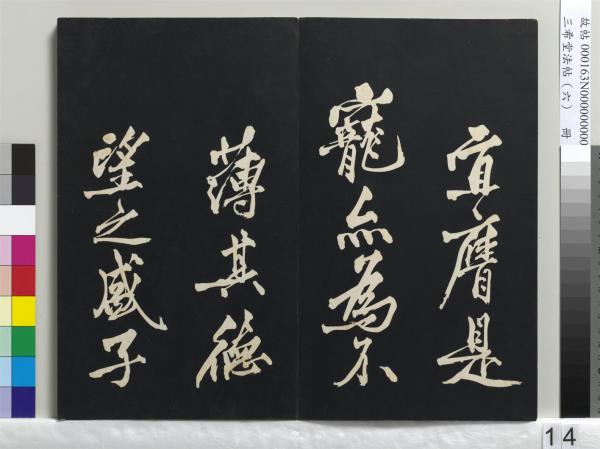 宜膺是
寵亦為不
薄其德
望之盛子
故帖 000163N000000000
三希堂法帖（六） 冊
14